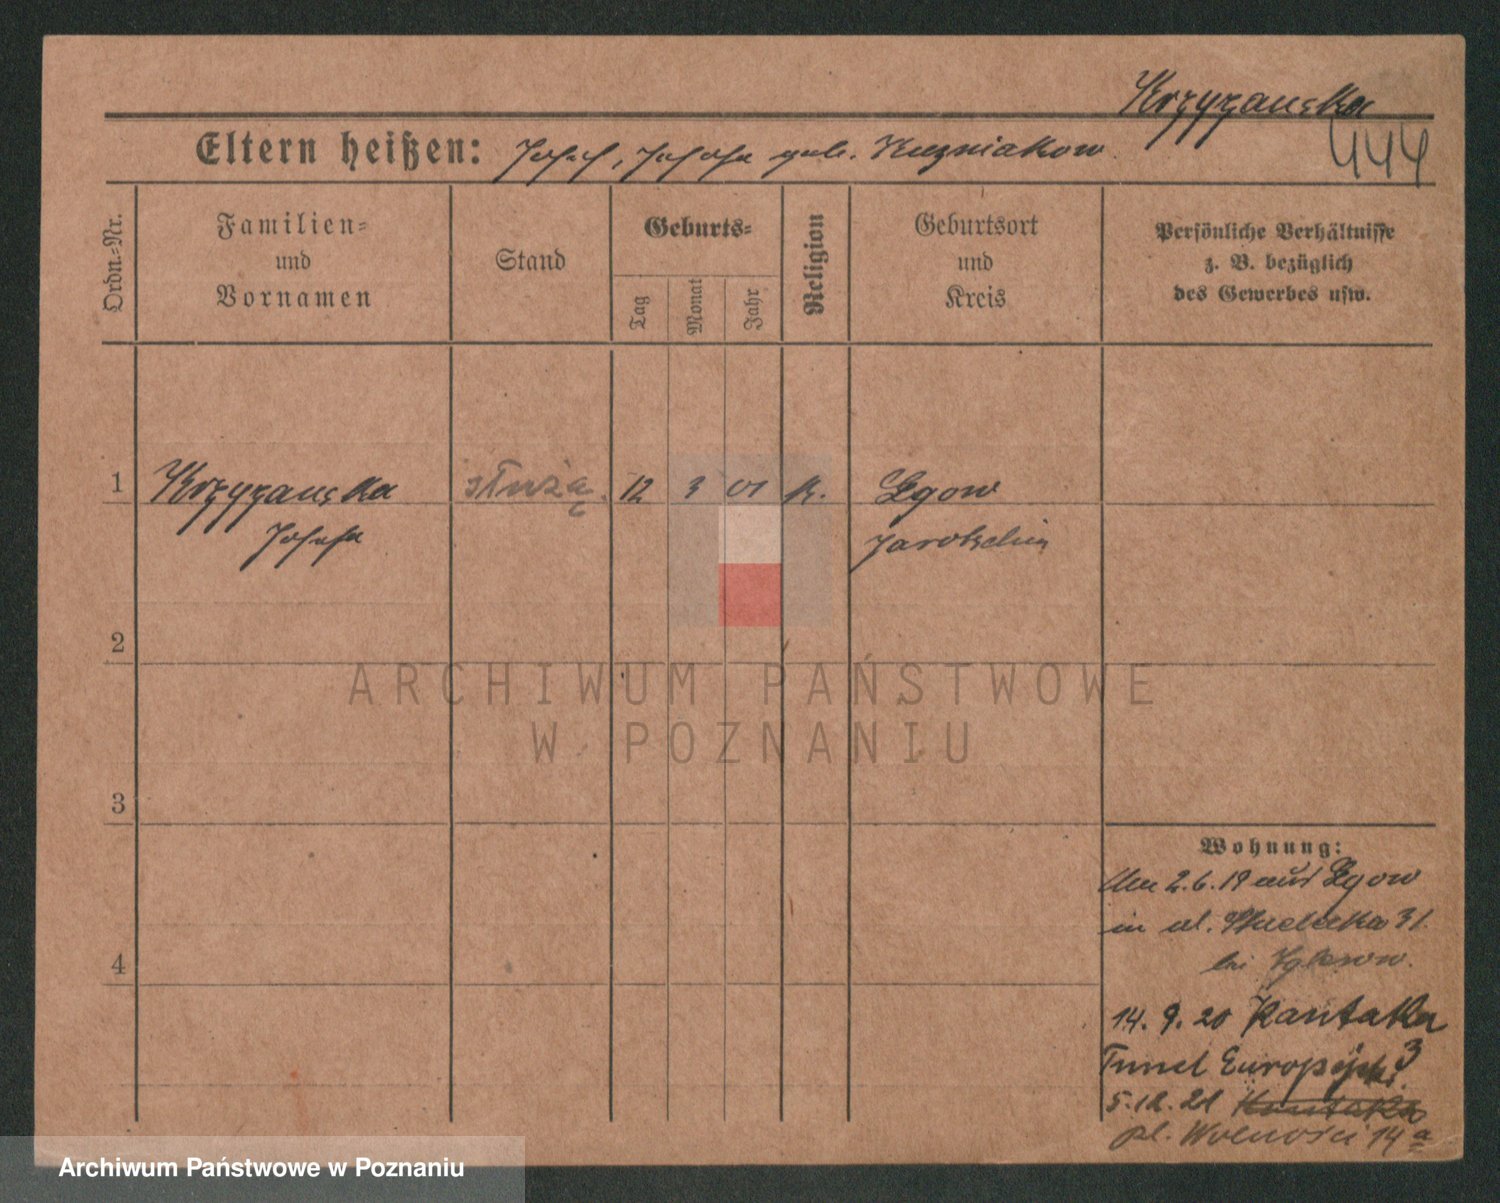 Krzyżanska
Eltern heißen: Josef, Josefa geb. Kuzniakow
444
Ordn.-Nr.
Familien-
und
Vornamen
Stand
Geburts-
Tag
Monat
Jahr
Religion
Geburtsort
und
Kreis
Persönliche Verhältnisse
z. B. bezüglich
des Gewerbes usw.
1 Krzyżanska służą. 12 3 01 k. Lgow
Josefa Jarotschin
2
ARCHIWUM PAŃSTWOWE
W POZNANIU
3
Wohnung:
Am 2.6.19 aus Lgow
in ul. 31.
4
bei
14. 9. 20 Kantaka 3
Tunel Europejski
5.12.21 Kantaka
pl. Wolności 14 a
Archiwum Państwowe w Poznaniu